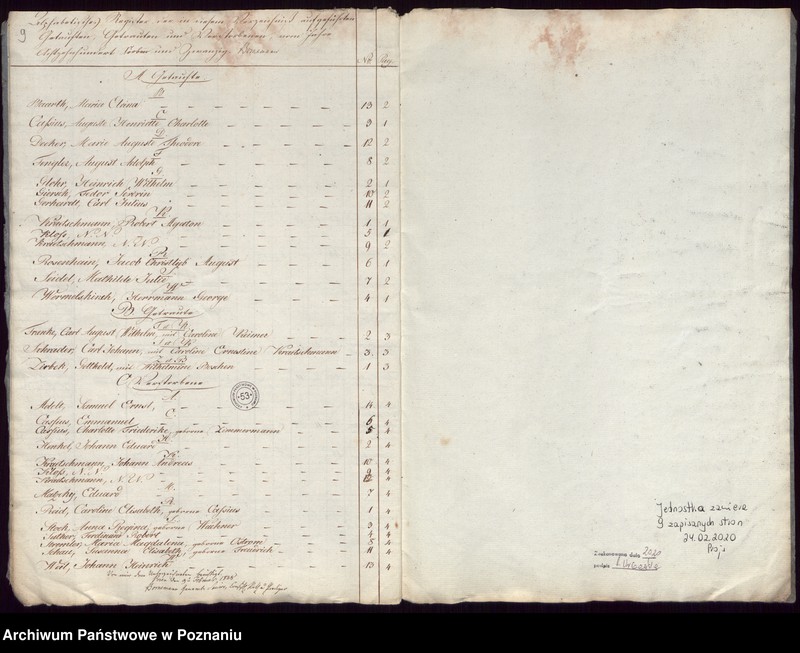 9
Alphabetisches Register der in diesem Verzeichniß aufgeführten
Getauften, Getrauten und Verstorbenen, vom Jahre
Achtzehnhundert Sieben und Zwanzig
No Pag.
A. Getaufte
B
Maria Elena 13 2
C.
Cassius, Auguste Henriette Charlotte 3 1
D
Decker, Marie Auguste Theodore 12 2
F
Fengler, August Adolph 8 2
G
Glohr, Heinrich Wilhelm 2 1
Gürsch, Fedor Severin 10 2
Gerhardt, Carl Julius 11 2
K
Kraetschmann, Robert Agaton 1 1
Kloss, N. N. 5 1
Kraetschmann, N. N. 9 2
R
Rosenhain, Jacob Christlieb August 6 1
S
Seidel, Mathilde Julie 7 2
W
Wormelskirch, Herrmann George 4 1
B. Getraute
F. u. K.
Franke, Carl August Wilhelm, mit Caroline 2 3
S. u. K.
Schrader, Carl Johann, mit Caroline Ernestine Kraetschmann 3. 3
Z. u. B.
Zirbeck, Gotthold, mit Wilhelmine 1 3
C. Verstorbene
A.
Samuel Ernst, 14 4
C.
Cassius, Emmanuel 6 4
Cassius, Charlotte Friederike, geborne Zimmermann 5 4
H
Henkel, Johann Eduard 2 4
K.
Kraetschmann, Johann Andreas 10 4
Kloss, N. N. 9 4
Kraetschmann, N. N. 12 4
M.
Eduard 7 4
R.
Reid, Caroline Elisabeth, geborne Cassius 1 4
S.
Stock, Anna Regina, geborne 3 4
Ferdinand Robert 4 4
Maria Magdalena, geborne 8 4
Susanna Elisabeth, geborne 11 4
W
Johann Heinrich 13 4
53
Jednostka zawiera
9 zapisanych stron
24.02.2020
Zeskanowano dnia 2020
podpis
Archiwum Państwowe w Poznaniu